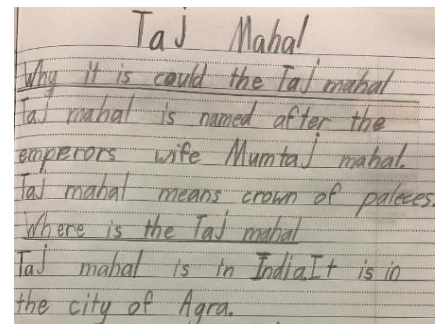 Taj Mahal
Why it is could the Taj mahal
Taj mahal is named after the
emperors wife Mumtaj mahal.
Taj mahal means crown of paleces.
Where is the Taj mahal
Taj mahal is in India.It is in
the city of Agra.